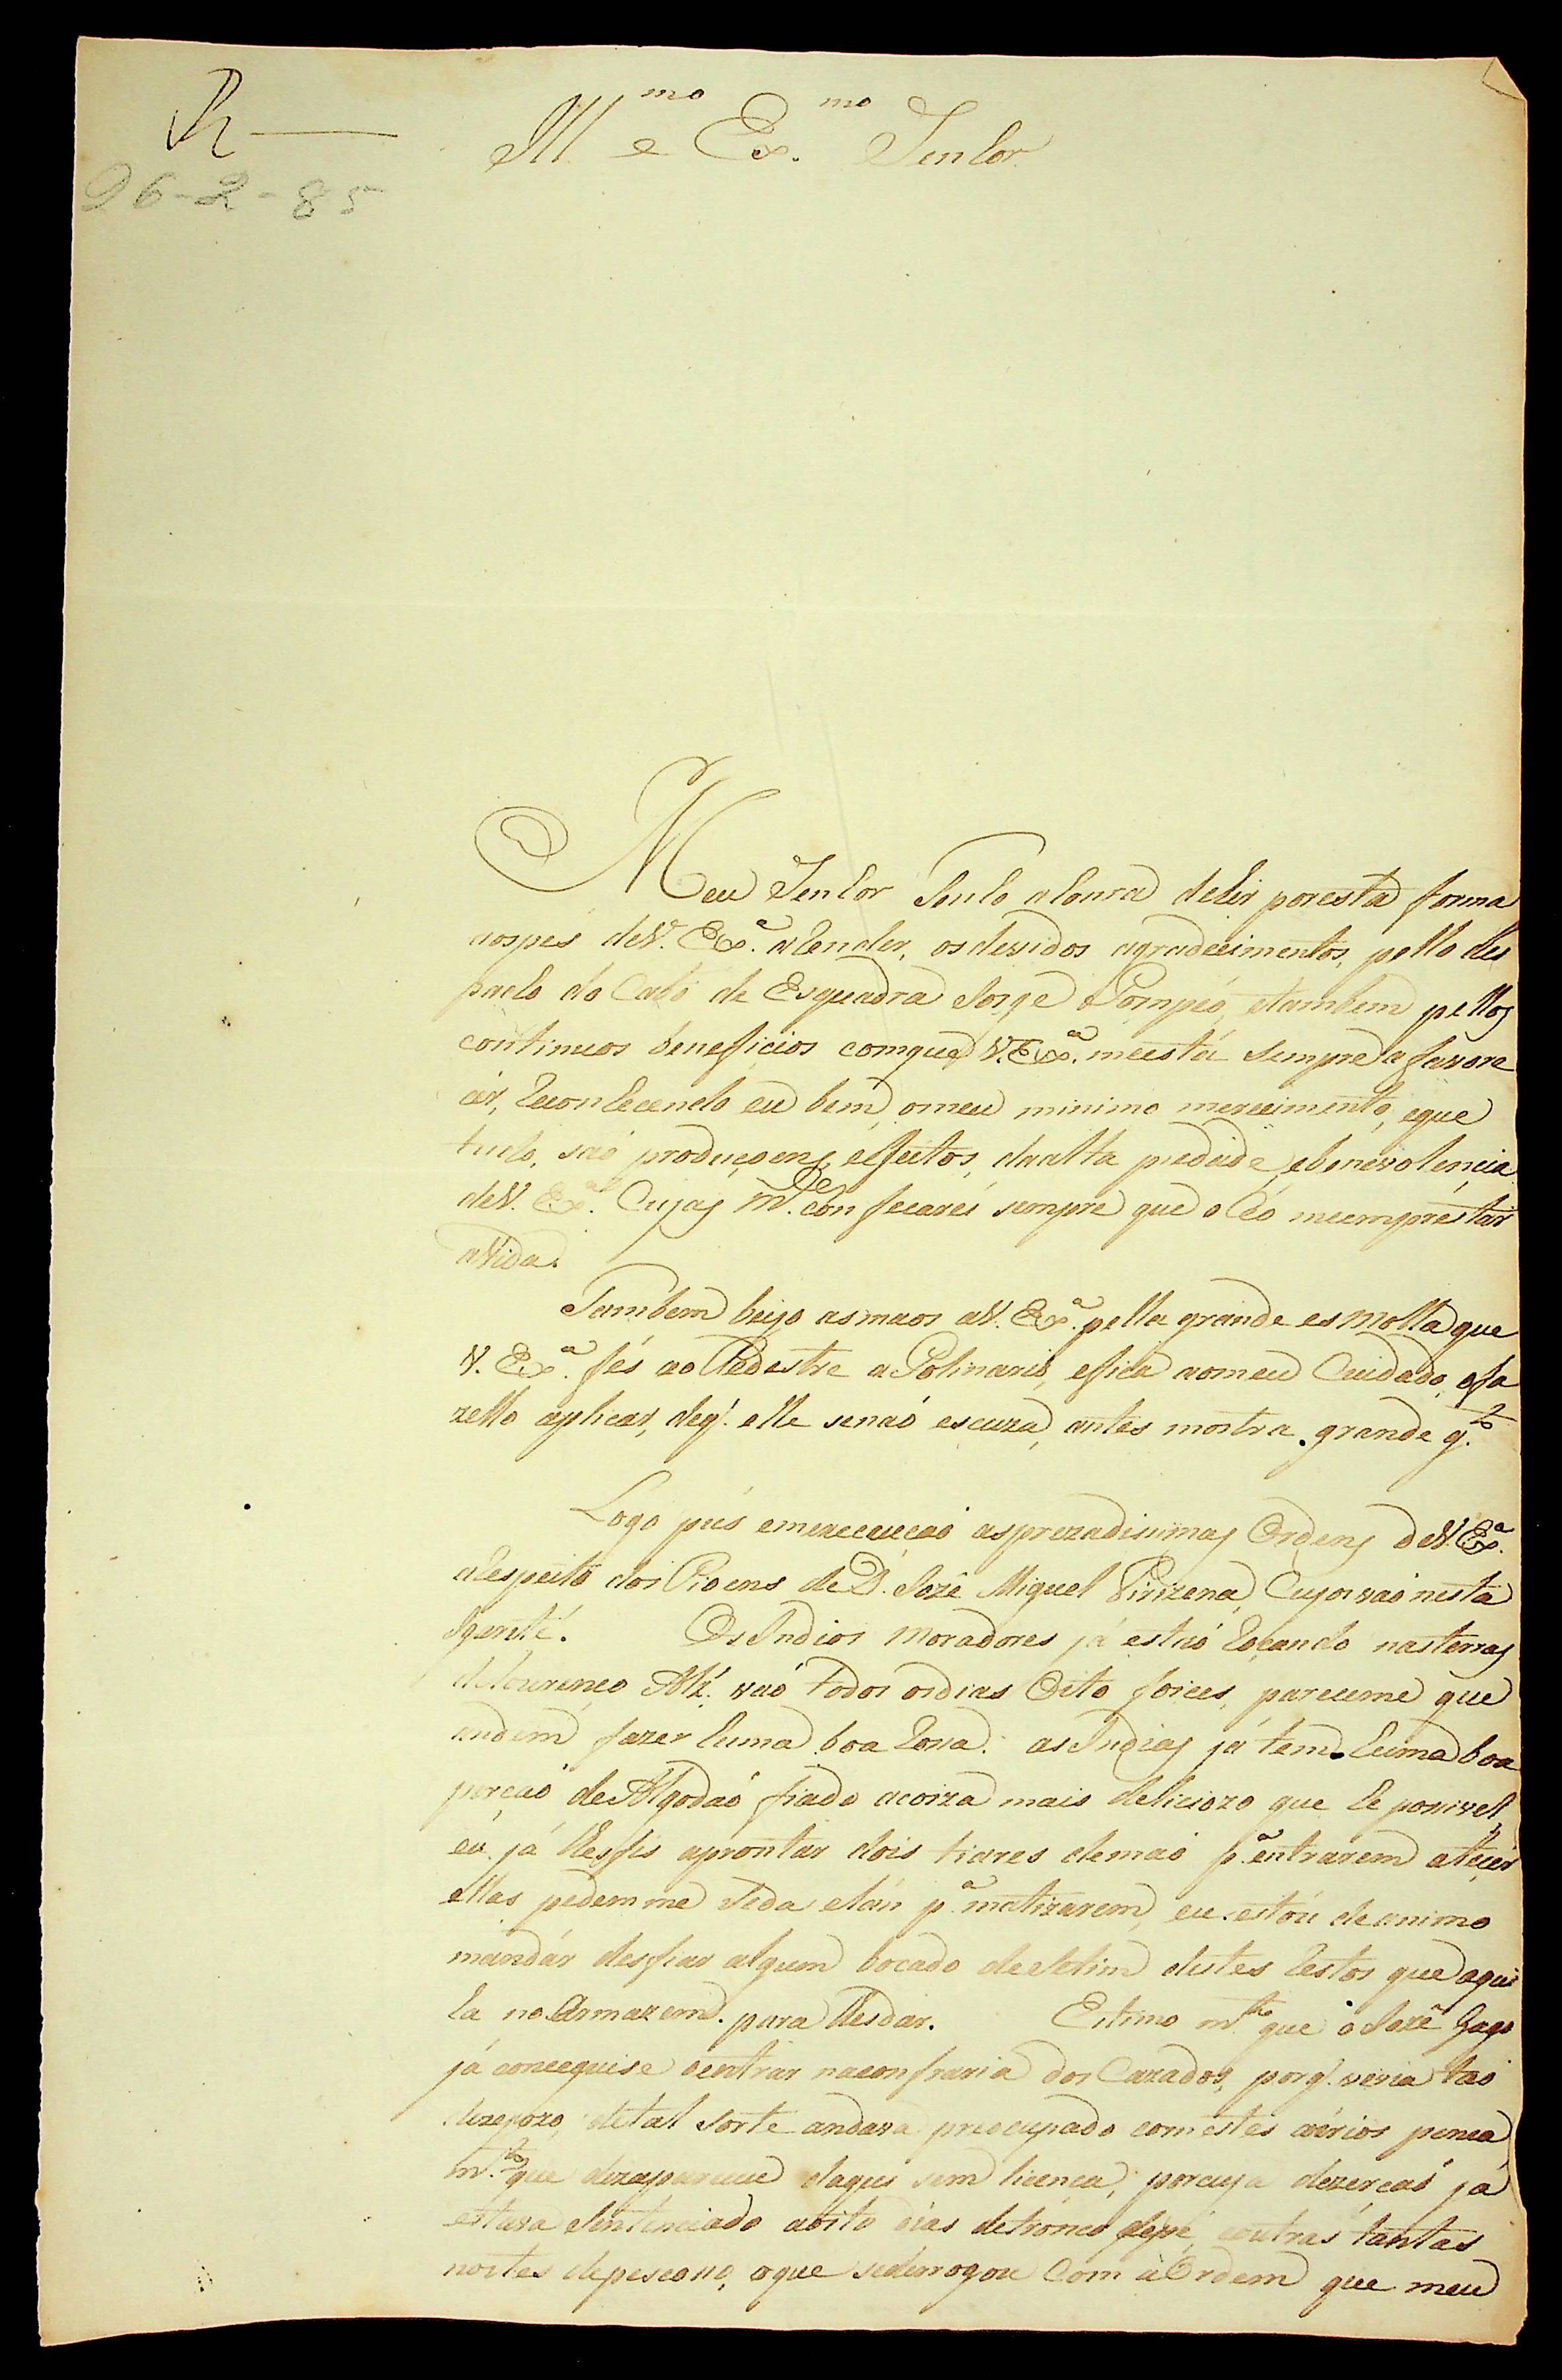 R
26-2-85
Ill.mo e Ex.mo Senhor
Meu Senhor Tenho a honra de hir por esta forma
aos pes de V. Ex.a Render, os devidos agradecimentos, pello des
pacho do Cabo de Esquadra Jorge Pompeo, etambem pellos
continuos beneficios comque V. Ex.a meestá sempre a favore
cer, Reconhecendo eu bem, omeu minimo merecimento, eque
tudo, saó produçoens, efeitos, daalta piedade, ebenevolencia
deV. Ex.a Cujas m.ces confecarei sempre que o Céo meemprestar
aVida.
Tambem beijo asmaos aV. Ex.a pella grande esmolla que
V. Ex.a fés ao Pedestre aPolinario, efica aomeu Cuidado, ofa
zello aplicar, deq' elle senaó escuza, antes mostra grande g.to
Logo pús emexecuçaó asprezadisimas Ordens deV. Ex.a
aRespeito dos Pioens de D. Jozê Miguel Virizena, Cujos vaó nesta
Igarité. Os Indios Moradores já estaó Roçando nasterras
deLourenço Alz. vaó todos osdias Oito foices, pareceme que
andem fazer huma boa Rossa. asIndias já tem huma boa
porçaó deAlgodaó fiado acoiza mais deliciozo que he possivel,
eu já lhesfis aprontar dois tiares demaó p.a entrarem atecer
ellas pedemme Seda elán p.a matizarem, eu estóu de animo
mandár desfiar algum bocado deSetim destes Restos que aqui
ha no Armazem para lhesdar. Estimo m.to que o Jozê Gago
já conceguise oentrar naconfraria dos Cazados, porq' vivia taó
detal sorte andava preocupado comestes
m.to que dezapareceu daqui sem licença, porcuja dezerçaó já
estava Sentenciado aoito dias detronco depé, eoutras tantas
noites depescosso, oque sederrogou Com à Ordem que meu